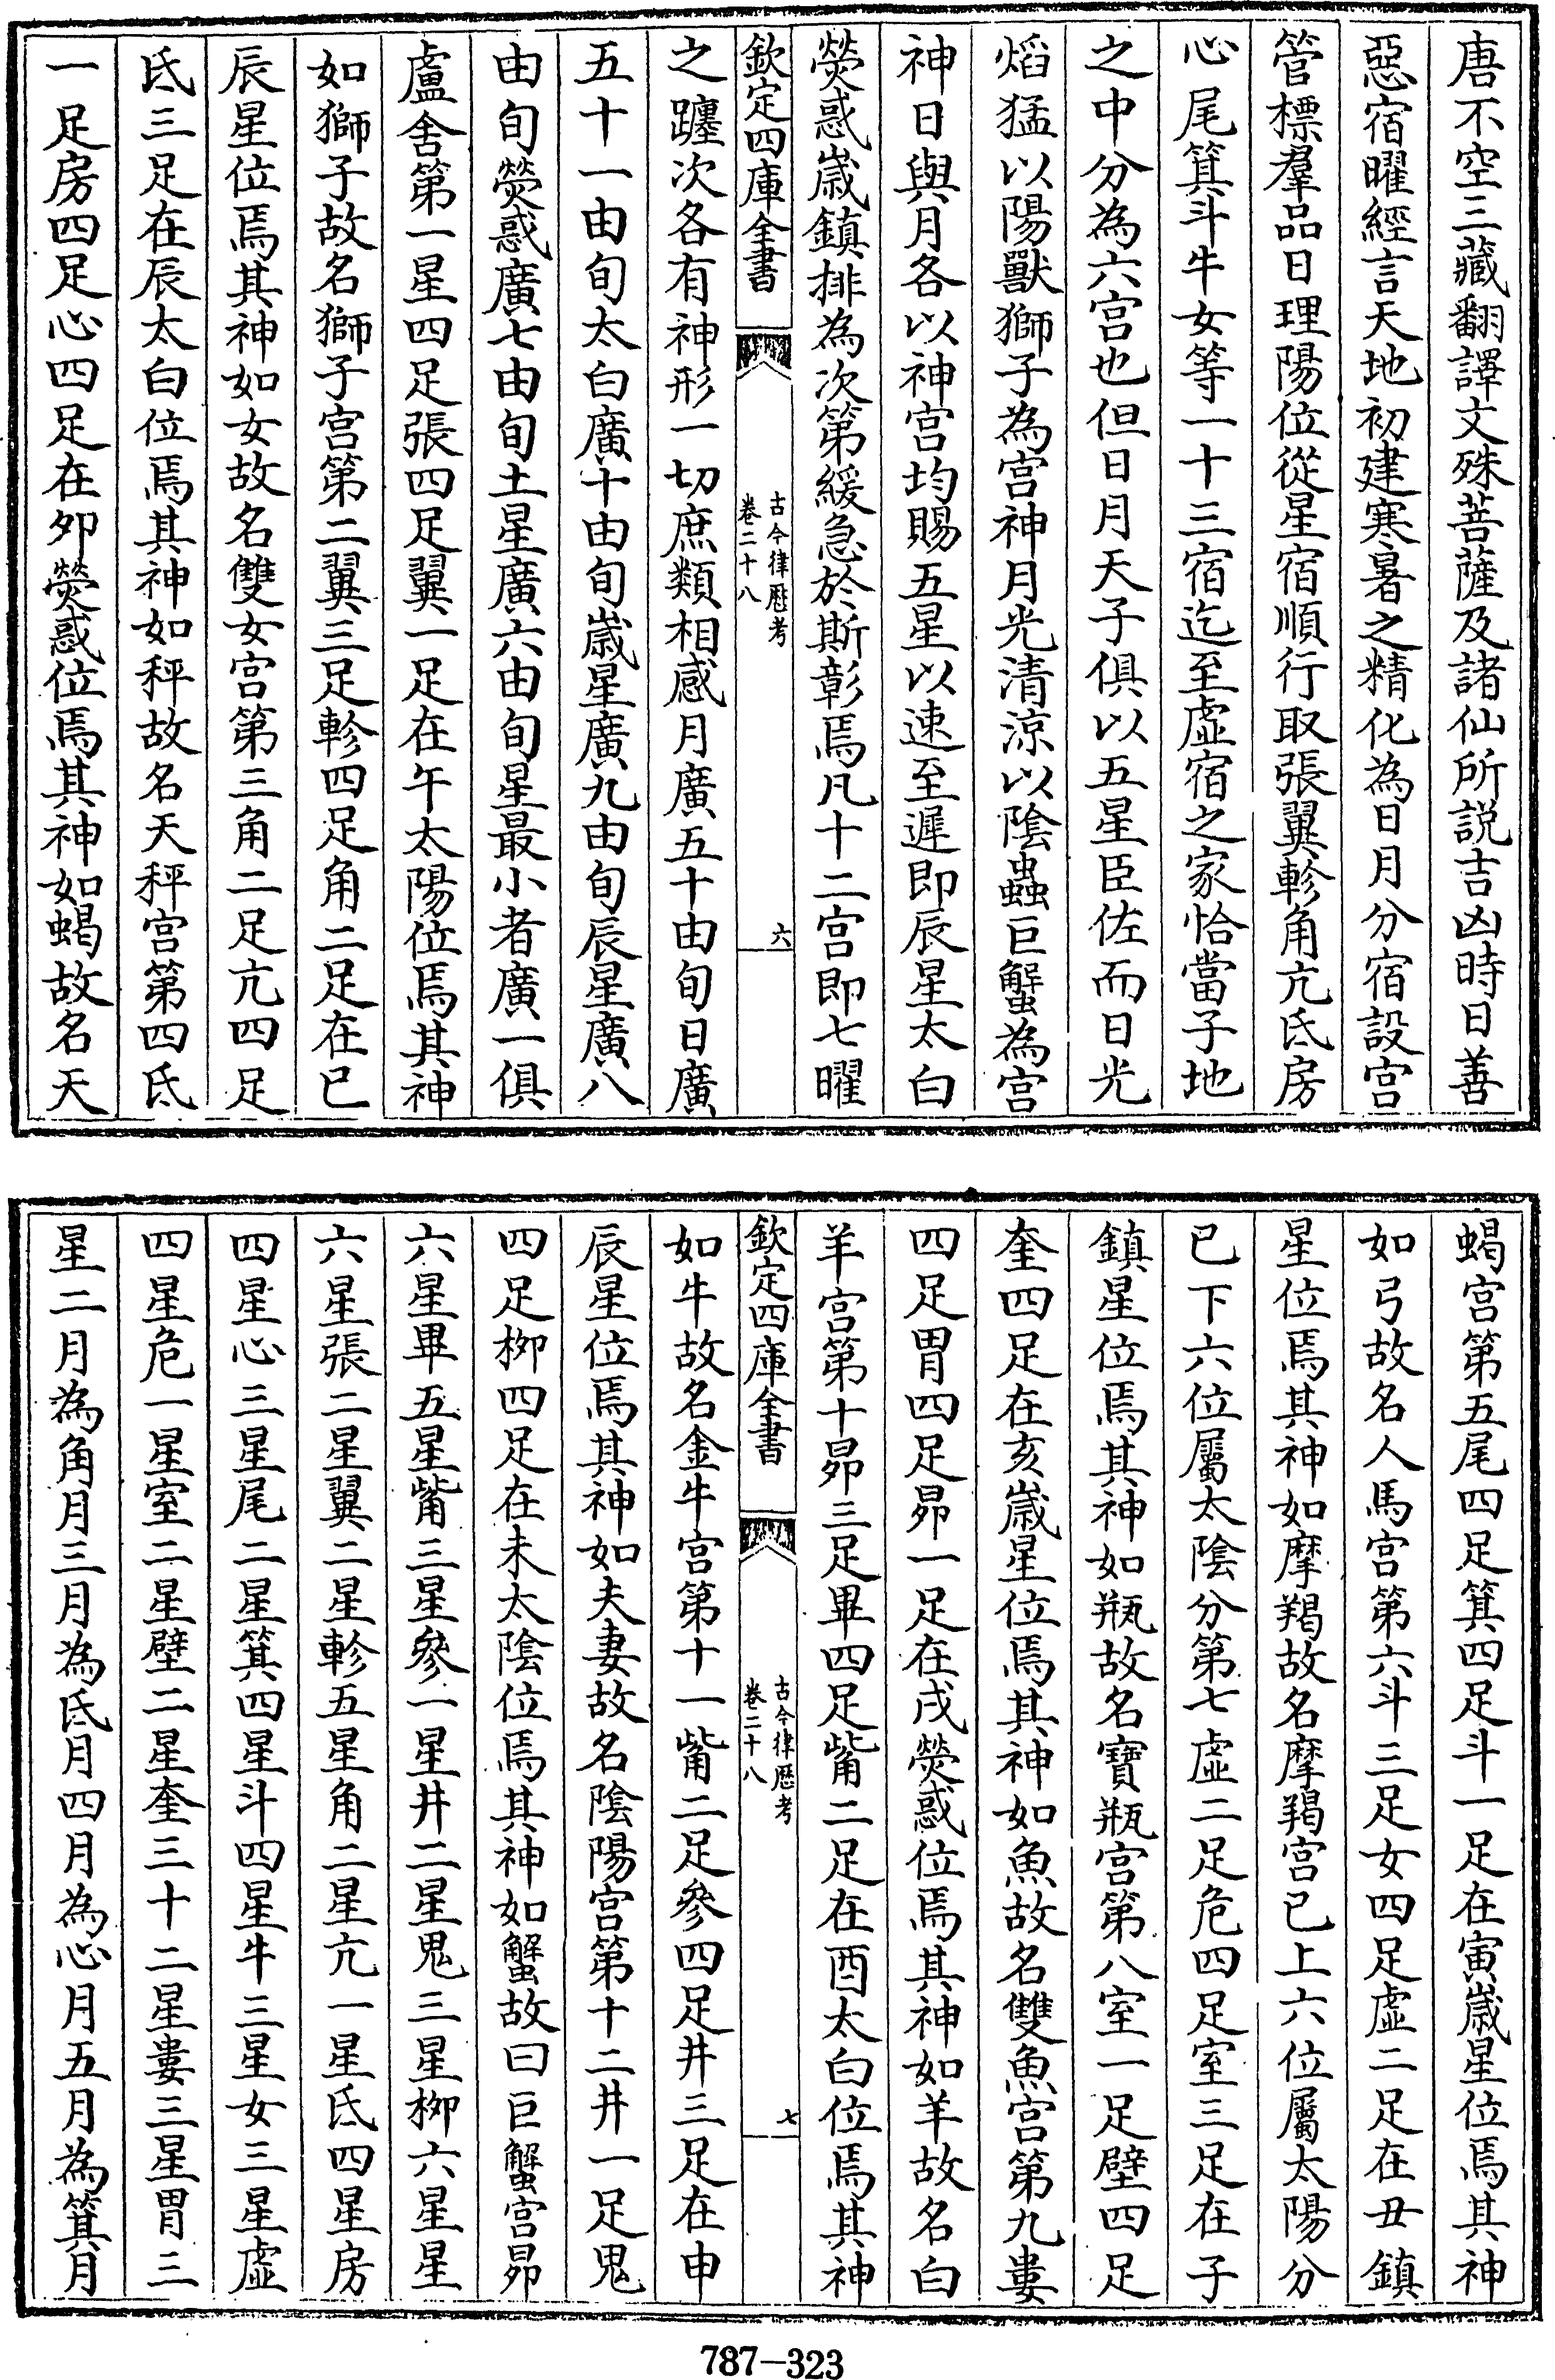 唐不空三藏翻譯文殊菩薩及諸仙所説吉凶時日善
惡宿曜經言天地初建寒暑之精化為日月分宿設宫
管標羣品日理陽位從星宿順行取張翼軫角亢氐房
心尾箕斗牛女等一十三宿迄至虚宿之家恰當子地
之中分為六宫也但日月天子俱以五星臣佐而日光
焰猛以陽獸獅子為宫神月光清涼以陰蟲巨蟹為宫
神日與月各以神宫均賜五星以速至遲即辰星太白
熒惑嵗鎮排為次第緩急於斯彰焉凡十二宫即七曜
欽定四庫全書
古今律厯考
卷二十八
六
之躔次各有神形一切庶類相感月廣五十由旬日廣
五十一由旬太白廣十由旬嵗星廣九由旬辰星廣八
由旬熒惑廣七由旬土星廣六由旬星最小者廣一俱
盧舍第一星四足張四足翼一足在午太陽位焉其神
如獅子故名獅子宫第二翼三足軫四足角二足在巳
辰星位焉其神如女故名雙女宫第三角二足亢四足
氐三足在辰太白位焉其神如秤故名天秤宫第四氐
一足房四足心四足在夘熒惑位焉其神如蝎故名天
蝎宫第五尾四足箕四足斗一足在寅嵗星位焉其神
如弓故名人馬宫第六斗三足女四足虚二足在丑鎮
星位焉其神如摩羯故名摩羯宫已上六位屬太陽分
已下六位屬太陰分第七虚二足危四足室三足在子
鎮星位焉其神如瓶故名寶瓶宫第八室一足壁四足
奎四足在亥嵗星位焉其神如魚故名雙魚宫第九婁
四足胃四足昴一足在戌熒惑位焉其神如羊故名白
羊宫第十昴三足畢四足觜二足在酉太白位焉其神
欽定四庫全書
古今律厯考
卷二十八
七
如牛故名金牛宫第十一觜二足參四足井三足在申
辰星位焉其神如夫妻故名陰陽宫第十二井一足鬼
四足栁四足在未太陰位焉其神如蟹故曰巨蟹宫昴
六星畢五星觜三星參一星井二星鬼三星栁六星星
六星張二星翼二星軫五星角二星亢一星氐四星房
四星心三星尾二星箕四星斗四星牛三星女三星虚
四星危一星室二星壁二星奎三十二星婁三星胃三
星二月為角月三月為氐月四月為心月五月為箕月
787-323